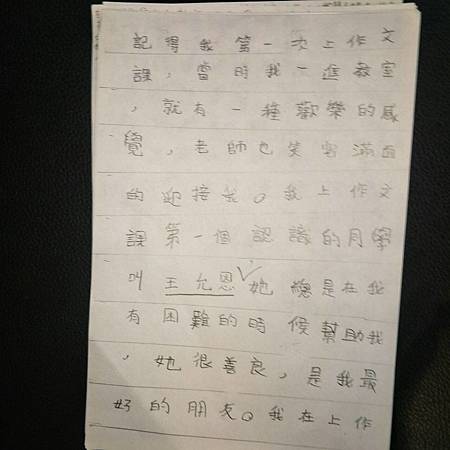 記得我第一次上作文
課，當時我一進教室
，就有一種歡樂的感
覺，老師也笑容滿面
的迎接我。我上作文
課第一個認識的同學
叫王允恩，她總是在我
有困難的時候幫助我
，她很善良，是我最
好的朋友。我在上作